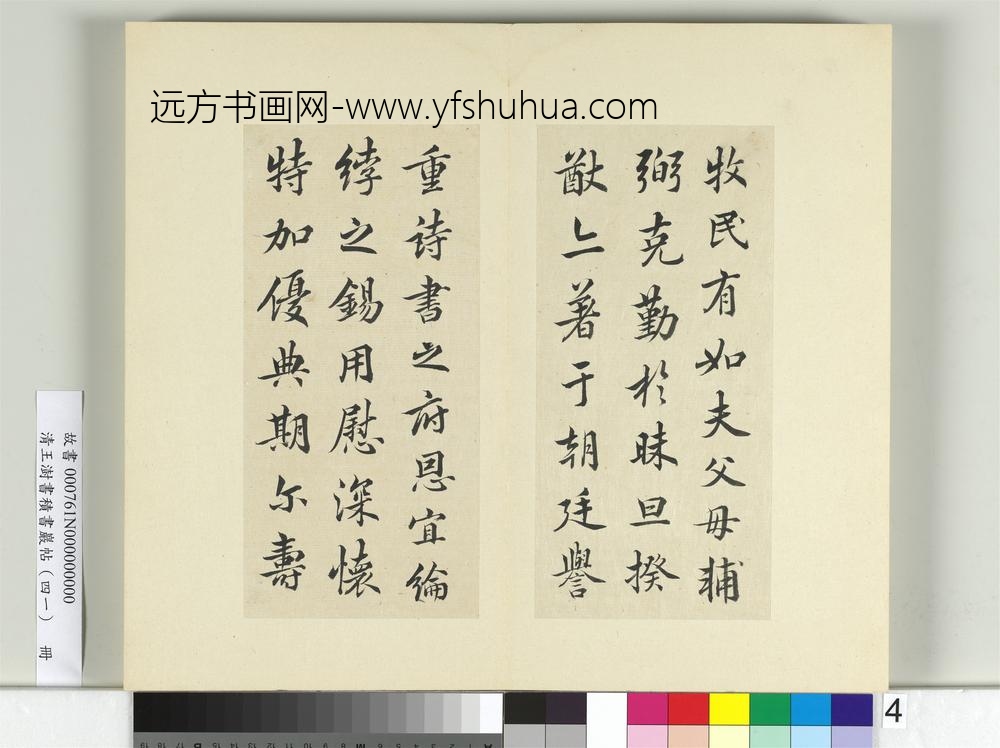 远方书画网-www.yfshuhua.com
牧民有如夫父母輔
弼克勤於昧旦揆
猷亼著于朝廷譽
重诗書之府恩宜綸
綍之錫用慰深懷
特加優典期尔壽
故書 000761N000000000
清王澍書積書巖帖（四一） 冊
4